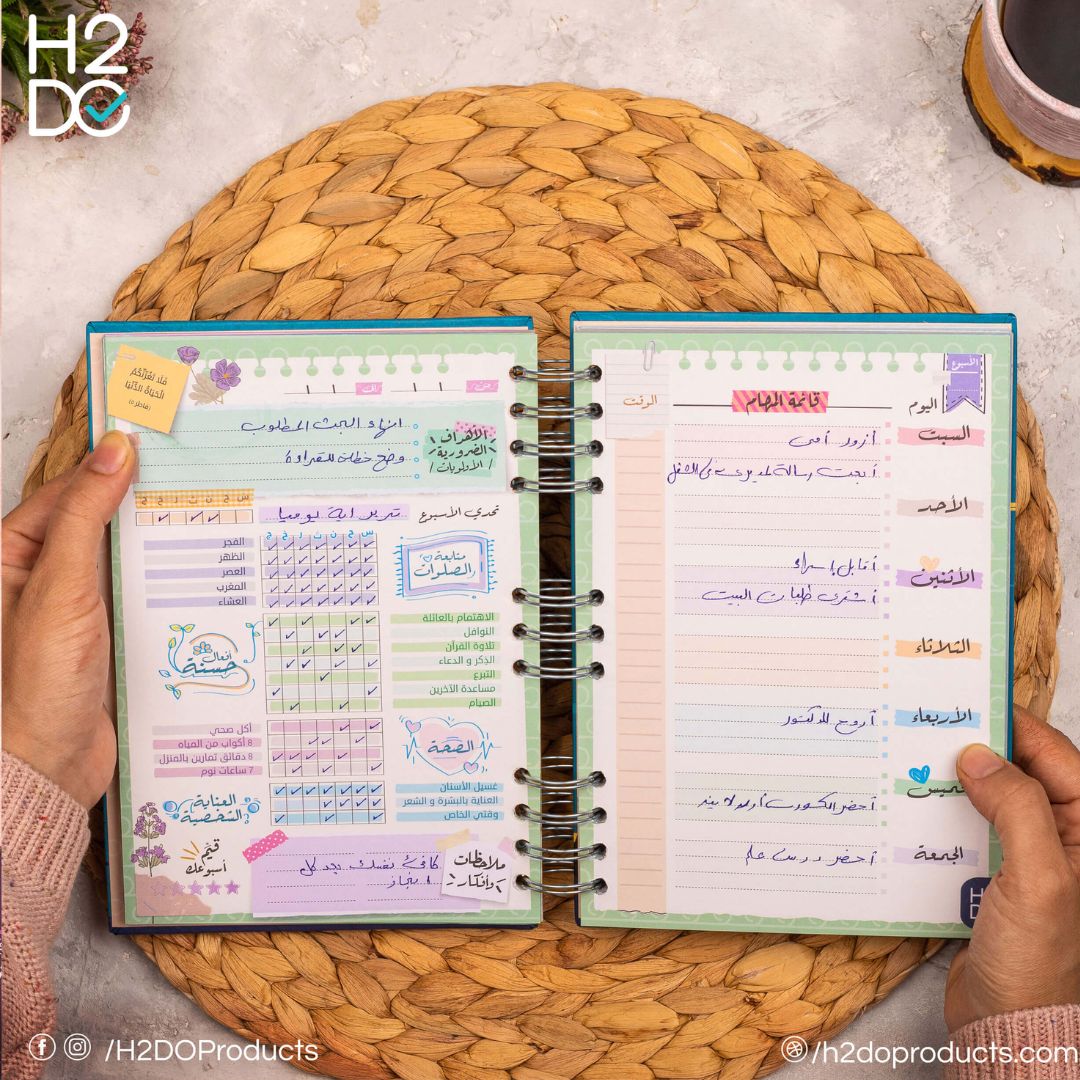 H2
DO
الأسبوع
اليوم
قائمة المهام
الوقت
السبت
أزور أمى
أبعت رسالة لمديرى فى الشغل
الأحد
الأثنين
أقابل إسراء
أشترى طلبات البيت
الثلاثاء
الأربعاء
أروح للدكتور
خميس
أحضر الكورس أونلاين
الجمعة
أحضر درس علم
فَلَا تَغُرَّنَّكُمُ
الْحَيَاةُ الدُّنْيَا
(فاطر:٥)
من
إلى
الأهداف
الضرورية
/ الأولويات /
انهاء البحث المطلوب
وضع خطة للقراءة
تحدي الأسبوع
تدبر اية يوميا
س ح ن ث ر خ ج
س ح ن ث ر خ ج
متابعة
الصلوات
الفجر
الظهر
العصر
المغرب
العشاء
أفعال
حسنة
الاهتمام بالعائلة
النوافل
تلاوة القرآن
الذكر و الدعاء
التبرع
مساعدة الآخرين
الصيام
الصحة
أكل صحي
8 أكواب من المياه
8 دقائق تمارين بالمنزل
7 ساعات نوم
العناية
الشخصية
غسيل الأسنان
العناية بالبشرة و الشعر
وقتي الخاص
قيّم
أسبوعك
ملاحظات
وأفكار
كافئ نفسك بعد كل
انجاز
H
D
/H2DOProducts
/h2doproducts.com